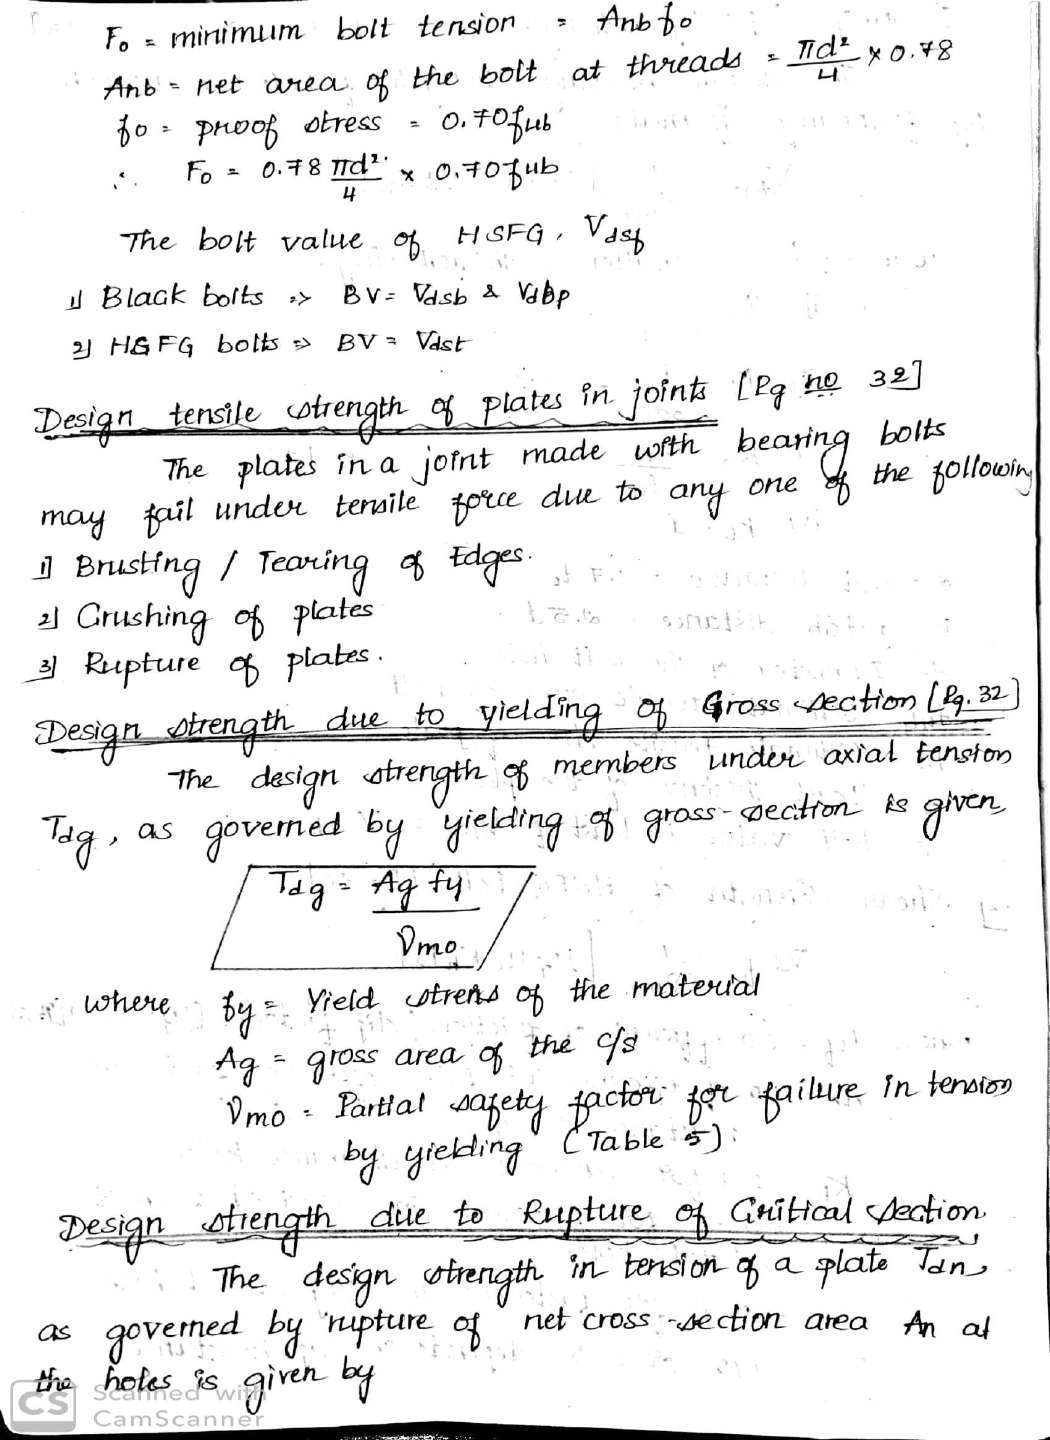 F₀ = minimum bolt tension = Anb f₀
Anb = net area of the bolt at threads = πd²/4 × 0.78
f₀ = proof stress = 0.70fub
∴ F₀ = 0.78 πd²/4 × 0.70fub
The bolt value of HSFG, Vdsf
1] Black bolts => BV = Vdsb & Vdbp
2] HSFG bolts => BV = Vdst
Design tensile strength of plates in joints [Pg no 32]
The plates in a joint made with bearing bolts
may fail under tensile force due to any one of the following
1] Brusting / Tearing of Edges.
2] Crushing of plates
3] Rupture of plates.
Design strength due to yielding of Gross section [Pg. 32]
The design strength of members under axial tension
Tdg, as governed by yielding of gross-section is given,
Tdg = Ag fy / γmo
where, fy = Yield stress of the material
Ag = gross area of the c/s
γmo = Partial safety factor for failure in tension
by yielding (Table 5).
Design strength due to Rupture of Critical section
The design strength in tension of a plate Tdn,
as governed by rupture of net cross-section area An at
the holes is given by
CS Scanned with
CamScanner